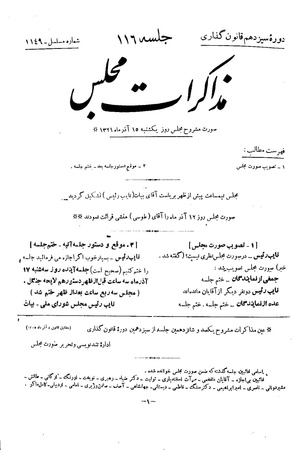 دورهٔ سیزدهم قانون گذاری
جلسه ۱۱۶
شماره مسلسل - ۱۱۴۹
مذاکرات مجلس
صورت مشروح مجلس روز یکشنبه ۱۵ آذر ماه ۱۳۲۱ *
فهرست مطالب :
۱ - تصویب صورت مجلس
۲ - موقع و دستور جلسه بعد - ختم جلسه .
مجلس نیمساعت پیش از ظهر بریاست آقای بیات (نایب رئیس) تشکیل گردید
صورت مجلس روز ۱۲ آذر ماه را آقای (طوسی) منشی قرائت نمودند **
[ ۱ - تصویب صورت مجلس ]
نایب رئیس - در صورت مجلس نظری نیست؛ (گفته شد .
خیر) صورت مجلس تصویب شد .
جمعی از نمایندگان - ختم جلسه
نایب رئیس دو نفر دیگر از آقایان مانده‌اند
عده از نمایندگان - ختم جلسه . ختم جلسه .
[ ۲ - موقع و دستور جلسه آتیه - ختم جلسه ]
نایب رئیس - بسیار خوب اگر اجازه می فرمائید جلسه
را ختم کنیم (صحیح است) جلسه آینده روز سه‌شنبه ۱۷
آذر ماه سه ساعت قبل از ظهر دستور هم لایحه جنگل .
[ مجلس سه ربع ساعت بعد از ظهر ختم شد ]
نایب رئیس مجلس شورای ملی - بیات
* عین مذاکرات مشروح یکصد و شانزدهمین جلسه از سیزدهمین دورهٔ قانون گذاری
اداره تندنویسی و تحریر صورت مجلس
** اسامی غائبین جلسه گذشته که ضمن صورت مجلس خوانده شده
- ۱ -